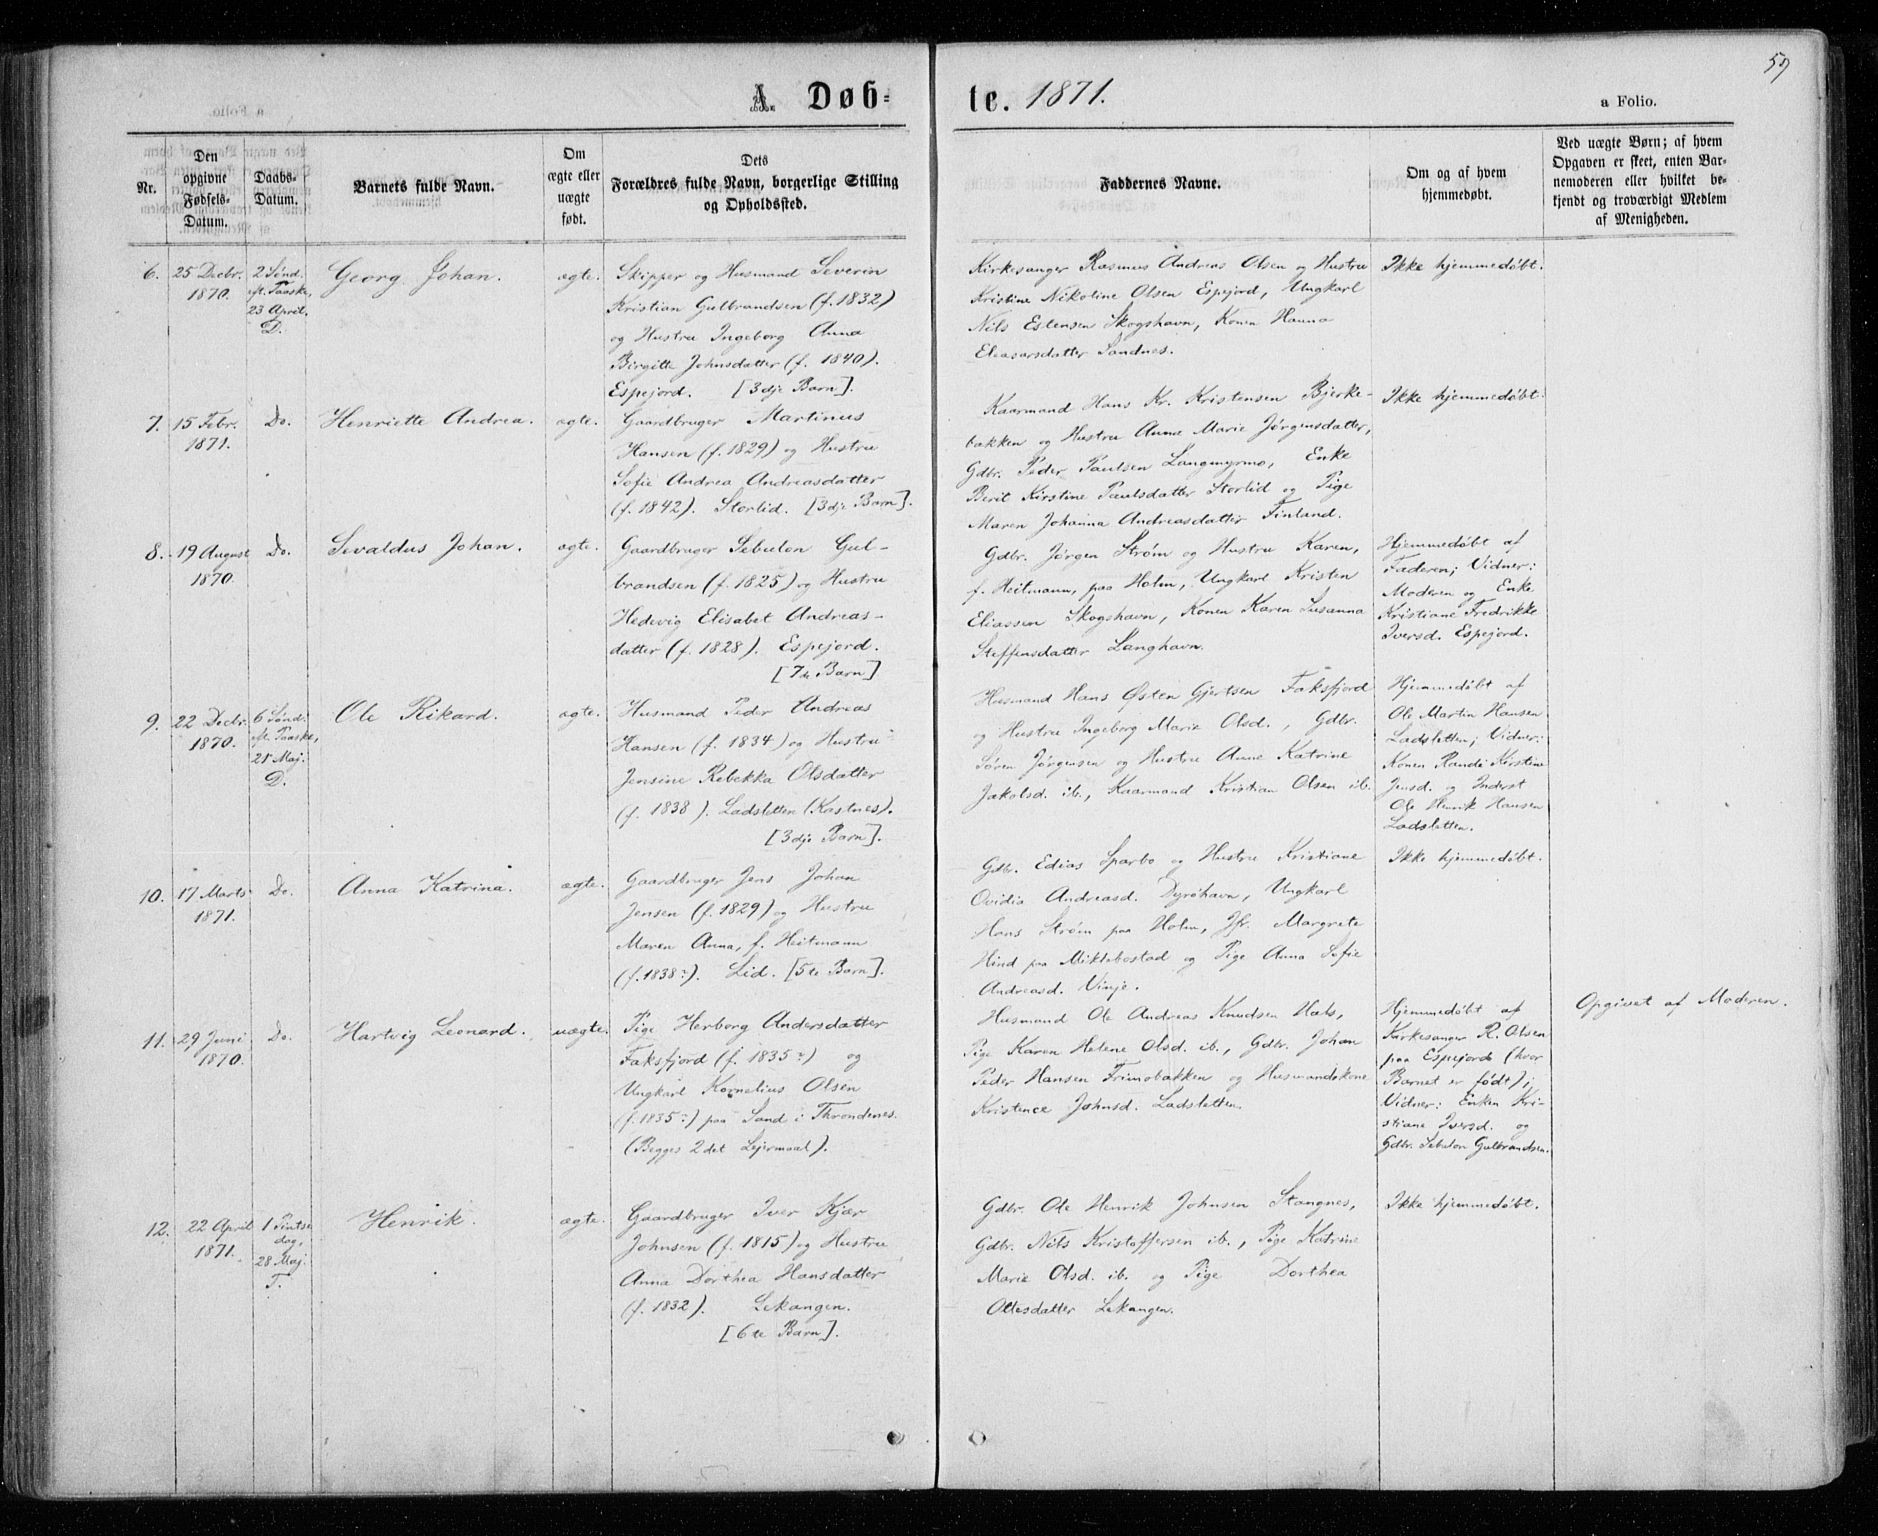 59
A. Døb=
te. 1871.
a Folio.
Nr.
Den
opgivne
Fødsels-
Datum.
Daabs-
Datum.
Barnets fulde Navn.
Om
ægte eller
uægte
født.
Dets
Forældres fulde Navn, borgerlige Stilling
og Opholdssted.
Faddernes Navne.
Om og af hvem
hjemmedøbt.
Ved uægte Børn; af hvem
Opgaven er skeet, enten Bar-
nemoderen eller hvilket be-
kjendt og troværdigt Medlem
af Menigheden.
6.
25 Decbr.
1870.
2 Sønd.
eft. Paaske,
23 April.
D.
Georg Johan.
ægte.
Skipper og Husmand Severin
Kristian Gulbrandsen (f. 1832)
og Hustru Ingeborg Anna
Birgitte Johnsdatter (f. 1840).
Espejord. [3dje Barn].
Kirkesanger Rasmus Andreas Olsen og Hustru
Kristine Nikoline Olsen Espejord, Ungkarl
Nils Estensen Skogshavn, Konen Hanna
Eleasarsdatter Sandnes.
Ikke hjemmedøbt.
7.
15 Febr.
1871.
Do.
Henriette Andrea.
ægte.
Gaardbruger Martinus
Hansen (f. 1829) og Hustru
Sofie Andrea Andreasdatter
(f. 1842). Storlid. [3dje Barn].
Kaarmand Hans Kr. Kristensen Bjerke-
bakken og Hustru Anne Marie Jørgensdatter,
Gdbr. Peder Paulsen Langmyrmo, Enke
Berit Kirstine Paulsdatter Storlid og Pige
Maren Johanna Andreasdatter Finland.
Ikke hjemmedøbt.
8.
19 August
1870.
Do.
Sevaldus Johan.
ægte.
Gaardbruger Sebulon Gul-
brandsen (f. 1825) og Hustru
Hedevig Elisabet Andreas-
datter (f. 1828). Espejord.
[7de Barn]
Gdbr. Jørgen Strøm og Hustru Karen,
f. Heitmann, paa Holm, Ungkarl Kristen
Eliassen Skogshavn, Konen Karen Susanna
Steffensdatter Langhavn.
Hjemmedøbt af
Faderen; Vidner:
Moderen og Enke
Kristiane Fredrikke
Iversd. Espejord.
9.
22 Decbr.
1870.
6 Sønd.
eft. Paaske,
21 Maj.
D.
Ole Rikard.
ægte.
Husmand Peder Andreas
Hansen (f. 1834) og Hustru
Jensine Rebekka Olsdatter
(f. 1838). Ladsletten (Kastnes).
[3dje Barn].
Husmand Hans Østen Gjertsen Faksfjord
og Hustru Ingeborg Marie Olsd., Gdbr.
Søren Jørgensen og Hustru Anne Katrine
Jakobsd. ib., Kaarmand Kristian Olsen ib.
Hjemmedøbt af
Ole Martin Hansen
Ladsletten; Vidner:
Konen Randi Kirstine
Jensd. og Inderst
Ole Henrik Hansen
Ladsletten.
10.
17 Marts
1871.
Do.
Anna Katrina.
ægte.
Gaardbruger Jens Johan
Jensen (f. 1829) og Hustru
Maren Anna, f. Heitmann
(f. 1838?). Lid. [5te Barn].
Gdbr. Edias Sparbo og Hustru Kristiane
Ovidia Andreasd. Dyrøhavn, Ungkarl
Hans Strøm paa Holm, Jfr. Margrete
Hind paa Miklebostad og Pige Anna Sofie
Andreasd. Vinje.
Ikke hjemmedøbt.
11.
29 Juni
1870.
Do.
Hartvig Leonard.
uægte.
Pige Herborg Andersdatter
Faksfjord (f. 1835?) og
Ungkarl Kornelius Olsen
(f. 1835?) paa Sand i Throndenes.
(Begges 2det Lejermaal).
Husmand Ole Andreas Knudsen Hals,
Pige Karen Helene Olsd. ib., Gdbr. Johan
Peder Hansen Trimobakken og Husmandskone
Kristence Johnsd. Ladsletten.
Hjemmedøbt af
Kirkesanger R. Olsen
paa Espejord (hvor
Barnet er født);
Vidner: Enken Kri-
stiane Iversd. og
Gdbr. Sebulon Gulbrandsen.
Opgivet af Moderen.
12.
22 April
1871.
1 Pintse
dag,
28 Maj.
T.
Henrik.
ægte.
Gaardbruger Iver Kjær
Johnsen (f. 1815) og Hustru
Anna Dorthea Hansdatter
(f. 1832). Lekangen.
[6te Barn].
Gdbr. Ole Henrik Johnsen Stangnes,
Gdbr. Nils Kristoffersen ib., Pige Katrine
Marie Olsd. ib. og Pige Dorthea
Ottesdatter Lekangen.
Ikke hjemmedøbt.